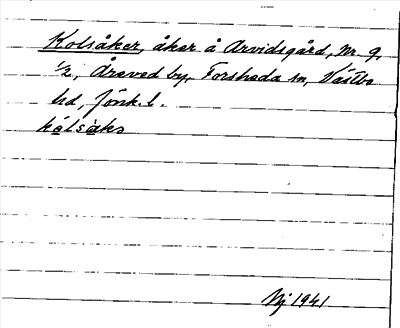 Kolsåker, åker å Arvidsgård, Nr. 9,
1/2, Åraved by, Forsheda sn, Västbo
hd, Jönk. l.
kólsàks
Nj 1941